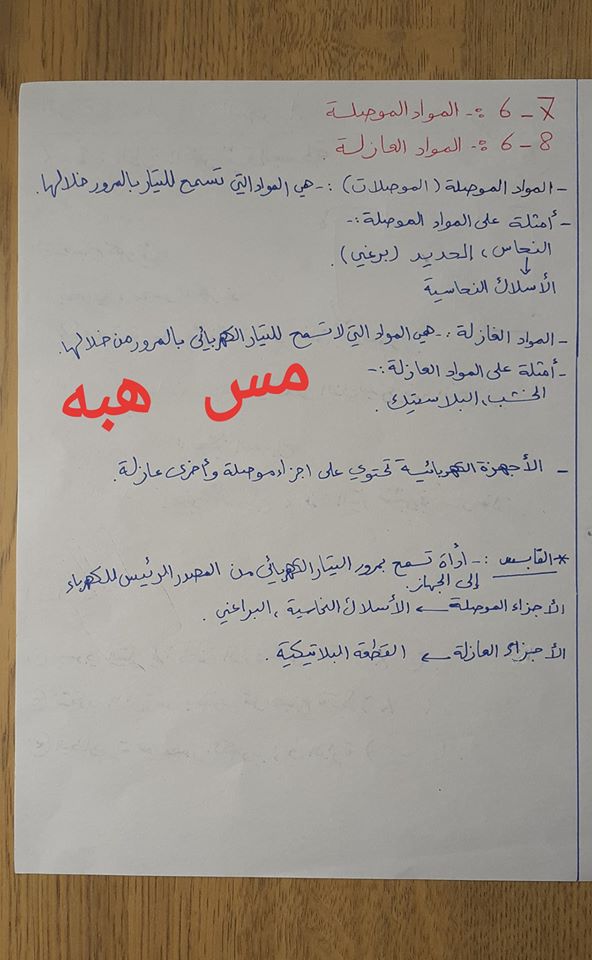 6 - 7 :- المواد الموصلة
6 - 8 :- المواد العازلة.
- المواد الموصلة (الموصلات) :- هي المواد التي تسمح للتيار بالمرور خلالها.
- أمثلة على المواد الموصلة :-
النحاس، الحديد (برغي).
↓
الأسلاك النحاسية
- المواد العازلة :- هي المواد التي لا تسمح للتيار الكهربائي بالمرور من خلالها.
- أمثلة على المواد العازلة :-
الخشب، البلاستيك.
مس هبه
- الأجهزة الكهربائية تحتوي على اجزاء موصلة وأخرى عازلة.
* القابس :- أداة تسمح بمرور التيار الكهربائي من المصدر الرئيس للكهرباء
إلى الجهاز.
الأجزاء الموصلة ← الأسلاك النحاسية، البراغي.
الأجزاء العازلة ← القطعة البلاتيكية.